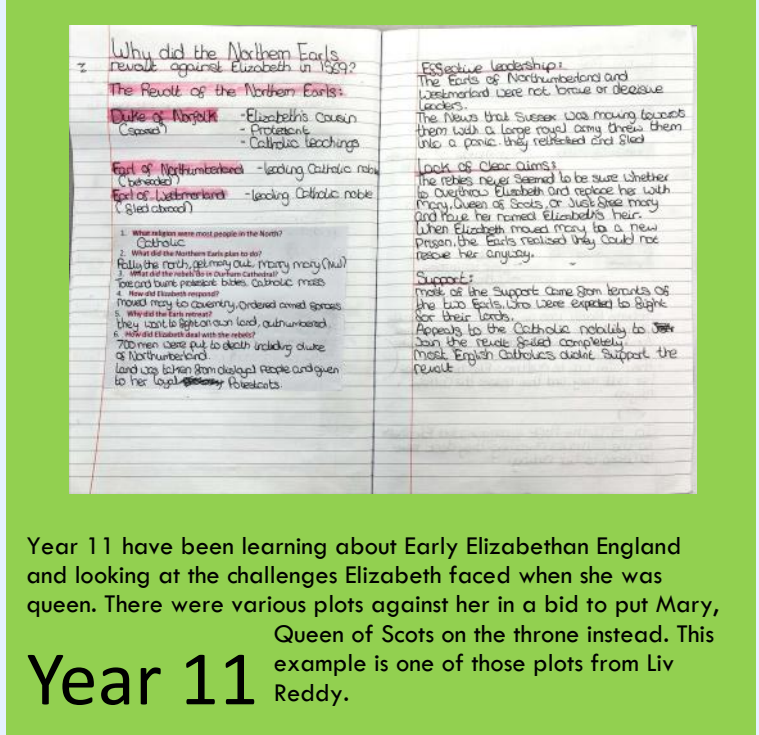 Why did the Northern Earls
revolt against Elizabeth in 1569?
The Revolt of the Northern Earls:
Duke of Norfolk - Elizabeth's cousin
(spared) - Protestant
- Catholic teachings
Earl of Northumberland - leading Catholic noble
(beheaded)
Earl of Westmorland - leading Catholic noble
(fled abroad)
1. What religion were most people in the North?
Catholic
2. What did the Northern Earls plan to do?
Rally the north, get mary out, marry mary
3. What did the rebels do in Durham Cathedral?
Tore and burnt protestant bibles. Catholic mass
4. How did Elizabeth respond?
moved mary to coventry, ordered armed forces
5. Why did the Earls retreat?
they want to fight on own land, outnumbered.
6. How did Elizabeth deal with the rebels?
700 men were put to death including duke
of Northumberland.
Land was taken from disloyal people and given
to her loyal Protestants.
Effective leadership:
The Earls of Northumberland and
Westmorland were not brave or decisive
leaders.
The News that Sussex was moving towards
them with a large royal army threw them
into a panic. they retreated and fled
Lack of Clear Aims:
The rebles never seemed to be sure whether
to overthrow Elizabeth and replace her with
Mary, Queen of Scots, or Just free mary
and have her named Elizabeth's heir.
When Elizabeth moved mary to a new
Prison, the Earls realised they could not
rescue her anyway.
Support:
most of the support came from tenants of
the two Earls, who were expected to fight
for their lords.
Appeals to the Catholic nobility to
Join the revolt failed completely.
most English Catholics didnt support the
revolt
Year 11 have been learning about Early Elizabethan England
and looking at the challenges Elizabeth faced when she was
queen. There were various plots against her in a bid to put Mary,
Queen of Scots on the throne instead. This
example is one of those plots from Liv
Reddy.
Year 11